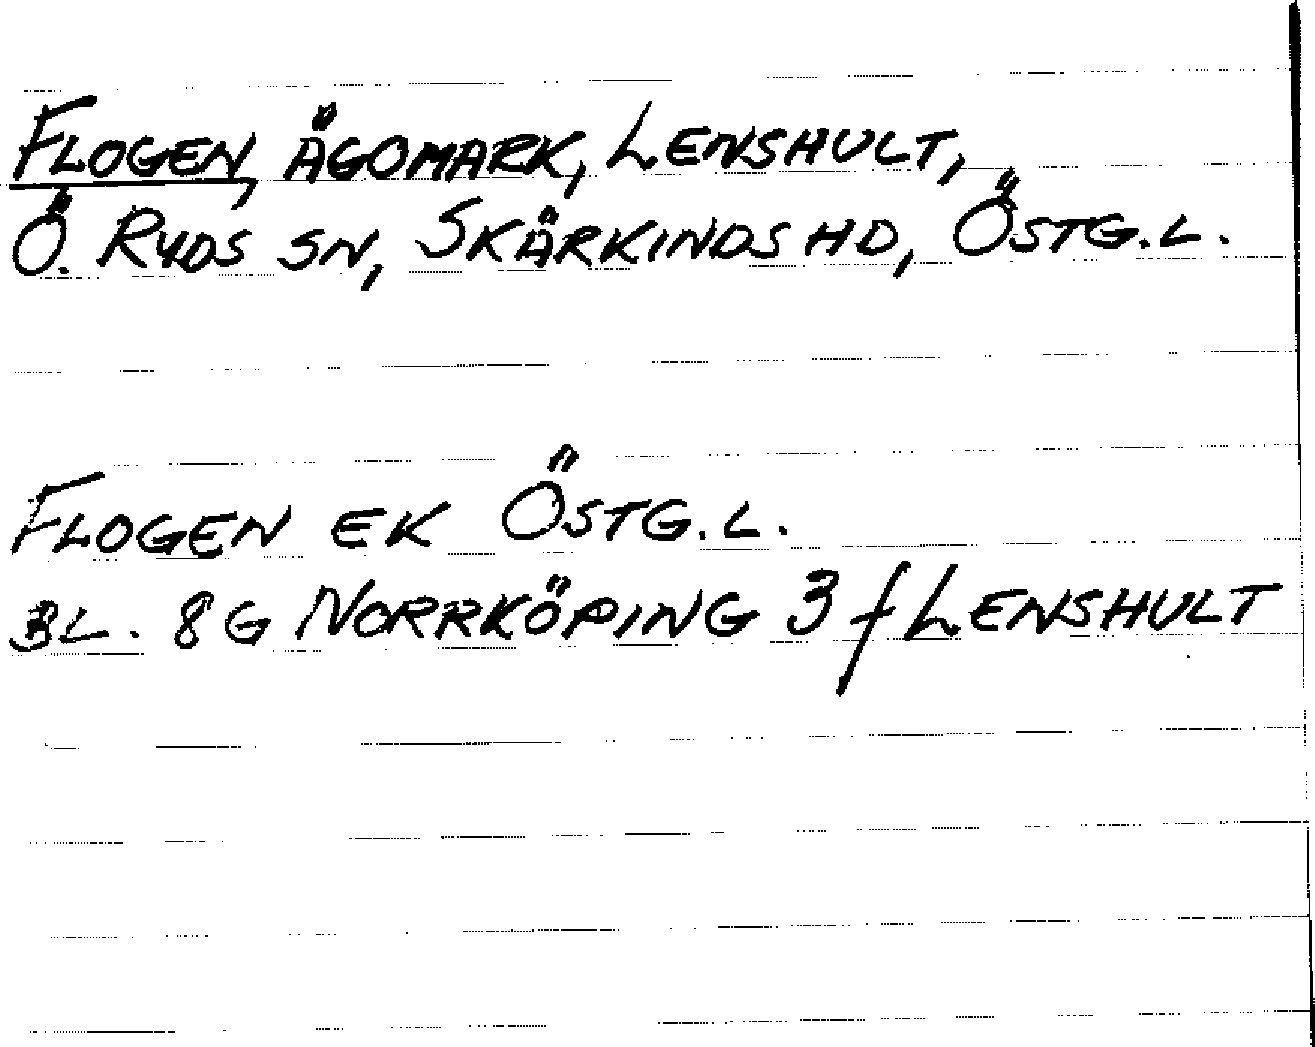 FLOGEN, ÄGOMARK, LENSHULT,
Ö. RYDS SN, SKÄRKINDS HD, ÖSTG.L.
FLOGEN EK ÖSTG.L.
BL. 8G NORRKÖPING 3 f LENSHULT